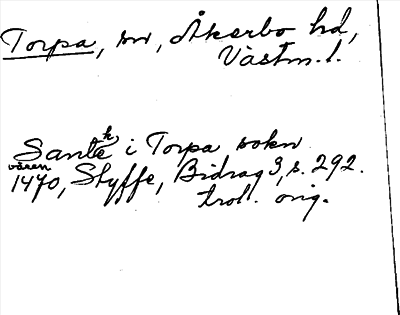 Torpa, sn, Åkerbo hd,
Västm. l.
Sante k i Torpa sokn
våren
1470, Styffe, Bidrag 3, s. 292.
trol. orig.